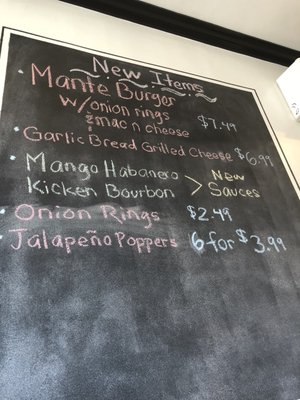 New Items
Mante Burger
w/onion rings
& mac n cheese $7.49
Garlic Bread Grilled Cheese $6.99
Mango Habanero > New
Kicken Bourbon Sauces
Onion Rings $2.49
Jalapeño Poppers 6 for $3.99